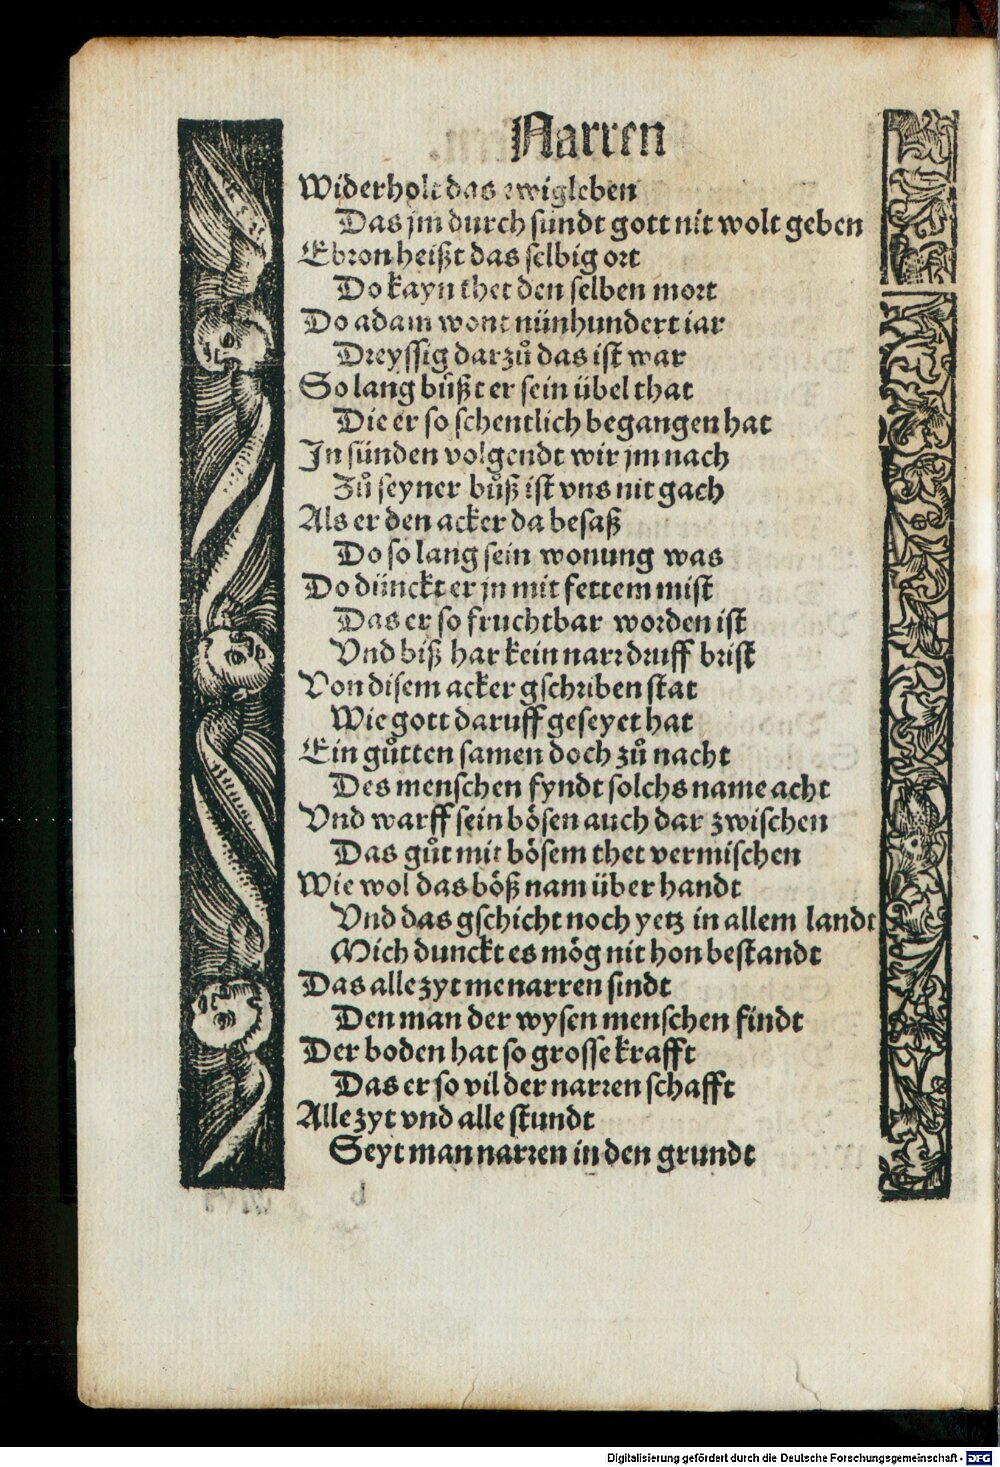 Narren
Widerholt das ewigleben
Das jm durch sündt gott nit wolt geben
Ebron heißt das selbig ort
Do kayn thet den selben mort
Do adam wont nünhundert iar
Dreyssig darzů das ist war
So lang bůßt er sein übel that
Die er so schentlich begangen hat
In sünden volgendt wir jm nach
Zů seyner bůß ist vns nit gach
Als er den acker da besaß
Do so lang sein wonung was
Do dünckt er jn mit fettem mist
Das er so fruchtbar worden ist
Vnd biß har kein narr druff brist
Von disem acker gschriben stat
Wie gott daruff geseyet hat
Ein gůtten samen doch zů nacht
Des menschen fyndt solchs name acht
Vnd warff sein bösen auch dar zwischen
Das gůt mit bösem thet vermischen
Wie wol das böß nam über handt
Vnd das gschicht noch yetz in allem landt
Mich dunckt es mög nit hon bestandt
Das alle zyt me narren sindt
Den man der wysen menschen findt
Der boden hat so grosse krafft
Das er so vil der narren schafft
Alle zyt vnd alle stundt
Seyt man narren in den grundt
Digitalisierung gefördert durch die Deutsche Forschungsgemeinschaft - DFG